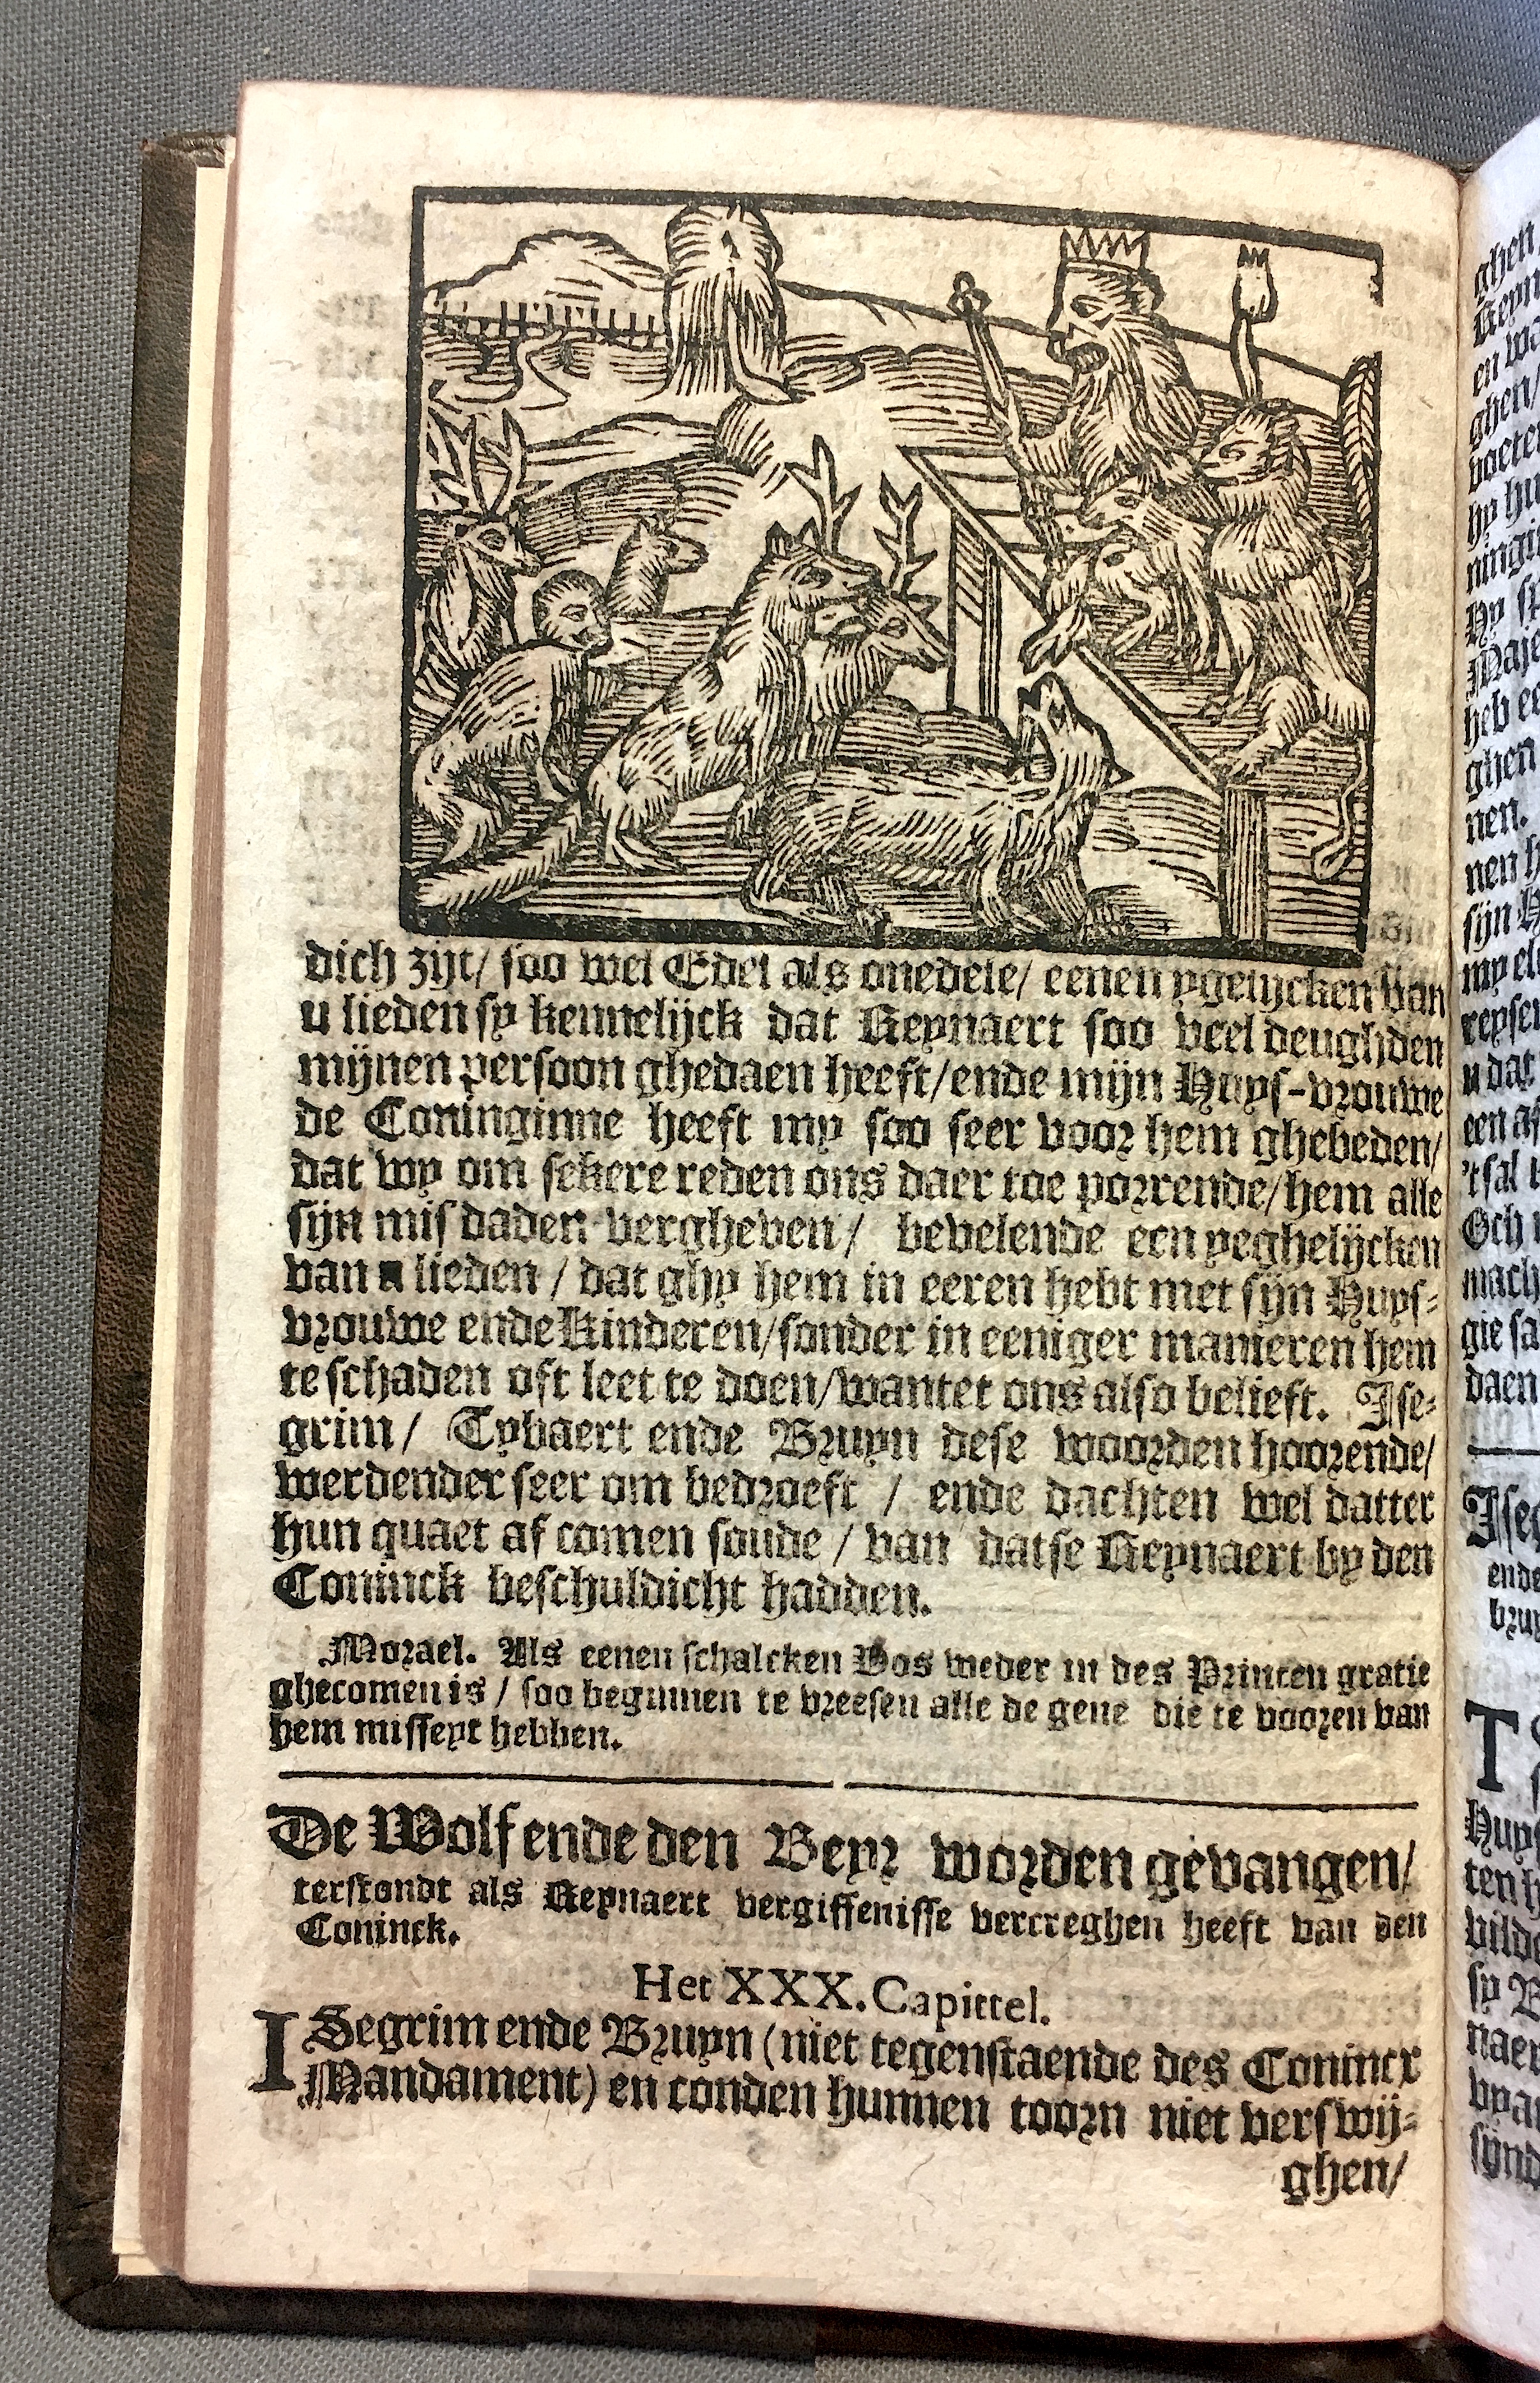 dich zijt/ soo wel Edel als onedele/ eenen ygelijcken van
u lieden sy kennelijck dat Reynaert soo veel deughden
mijnen persoon ghedaen heeft/ende mijn Huys-vrouwe
de Coninginne heeft my soo seer voor hem ghebeden/
dat wy om sekere reden ons daer toe porrende/hem alle
sijn misdaden vergheven/ bevelende een yeghelijcken
van u lieden / dat ghy hem in eeren hebt met sijn Huys-
vrouwe ende Kinderen/sonder in eeniger manieren hem
te schaden oft leet te doen/want et ons also belieft. Ise-
grim/ Tybaert ende Bruyn dese woorden hoorende/
werdender seer om bedroeft / ende dachten wel datter
hun quaet af comen soude / van datse Reynaert by den
Coninck beschuldicht hadden.
Morael. Als eenen schalcken Vos weder in des Princen gratie
ghecomen is / soo beginnen te vreesen alle de gene die te vooren van
hem misseyt hebben.
De Wolf ende den Beyr worden gevangen/
terstondt als Reynaert vergiffenisse vercreghen heeft van den
Coninck.
Het XXX. Capittel.
ISegrim ende Bruyn (niet tegenstaende des Conincx
Mandament) en conden hunnen toorn niet verswij-
ghen/